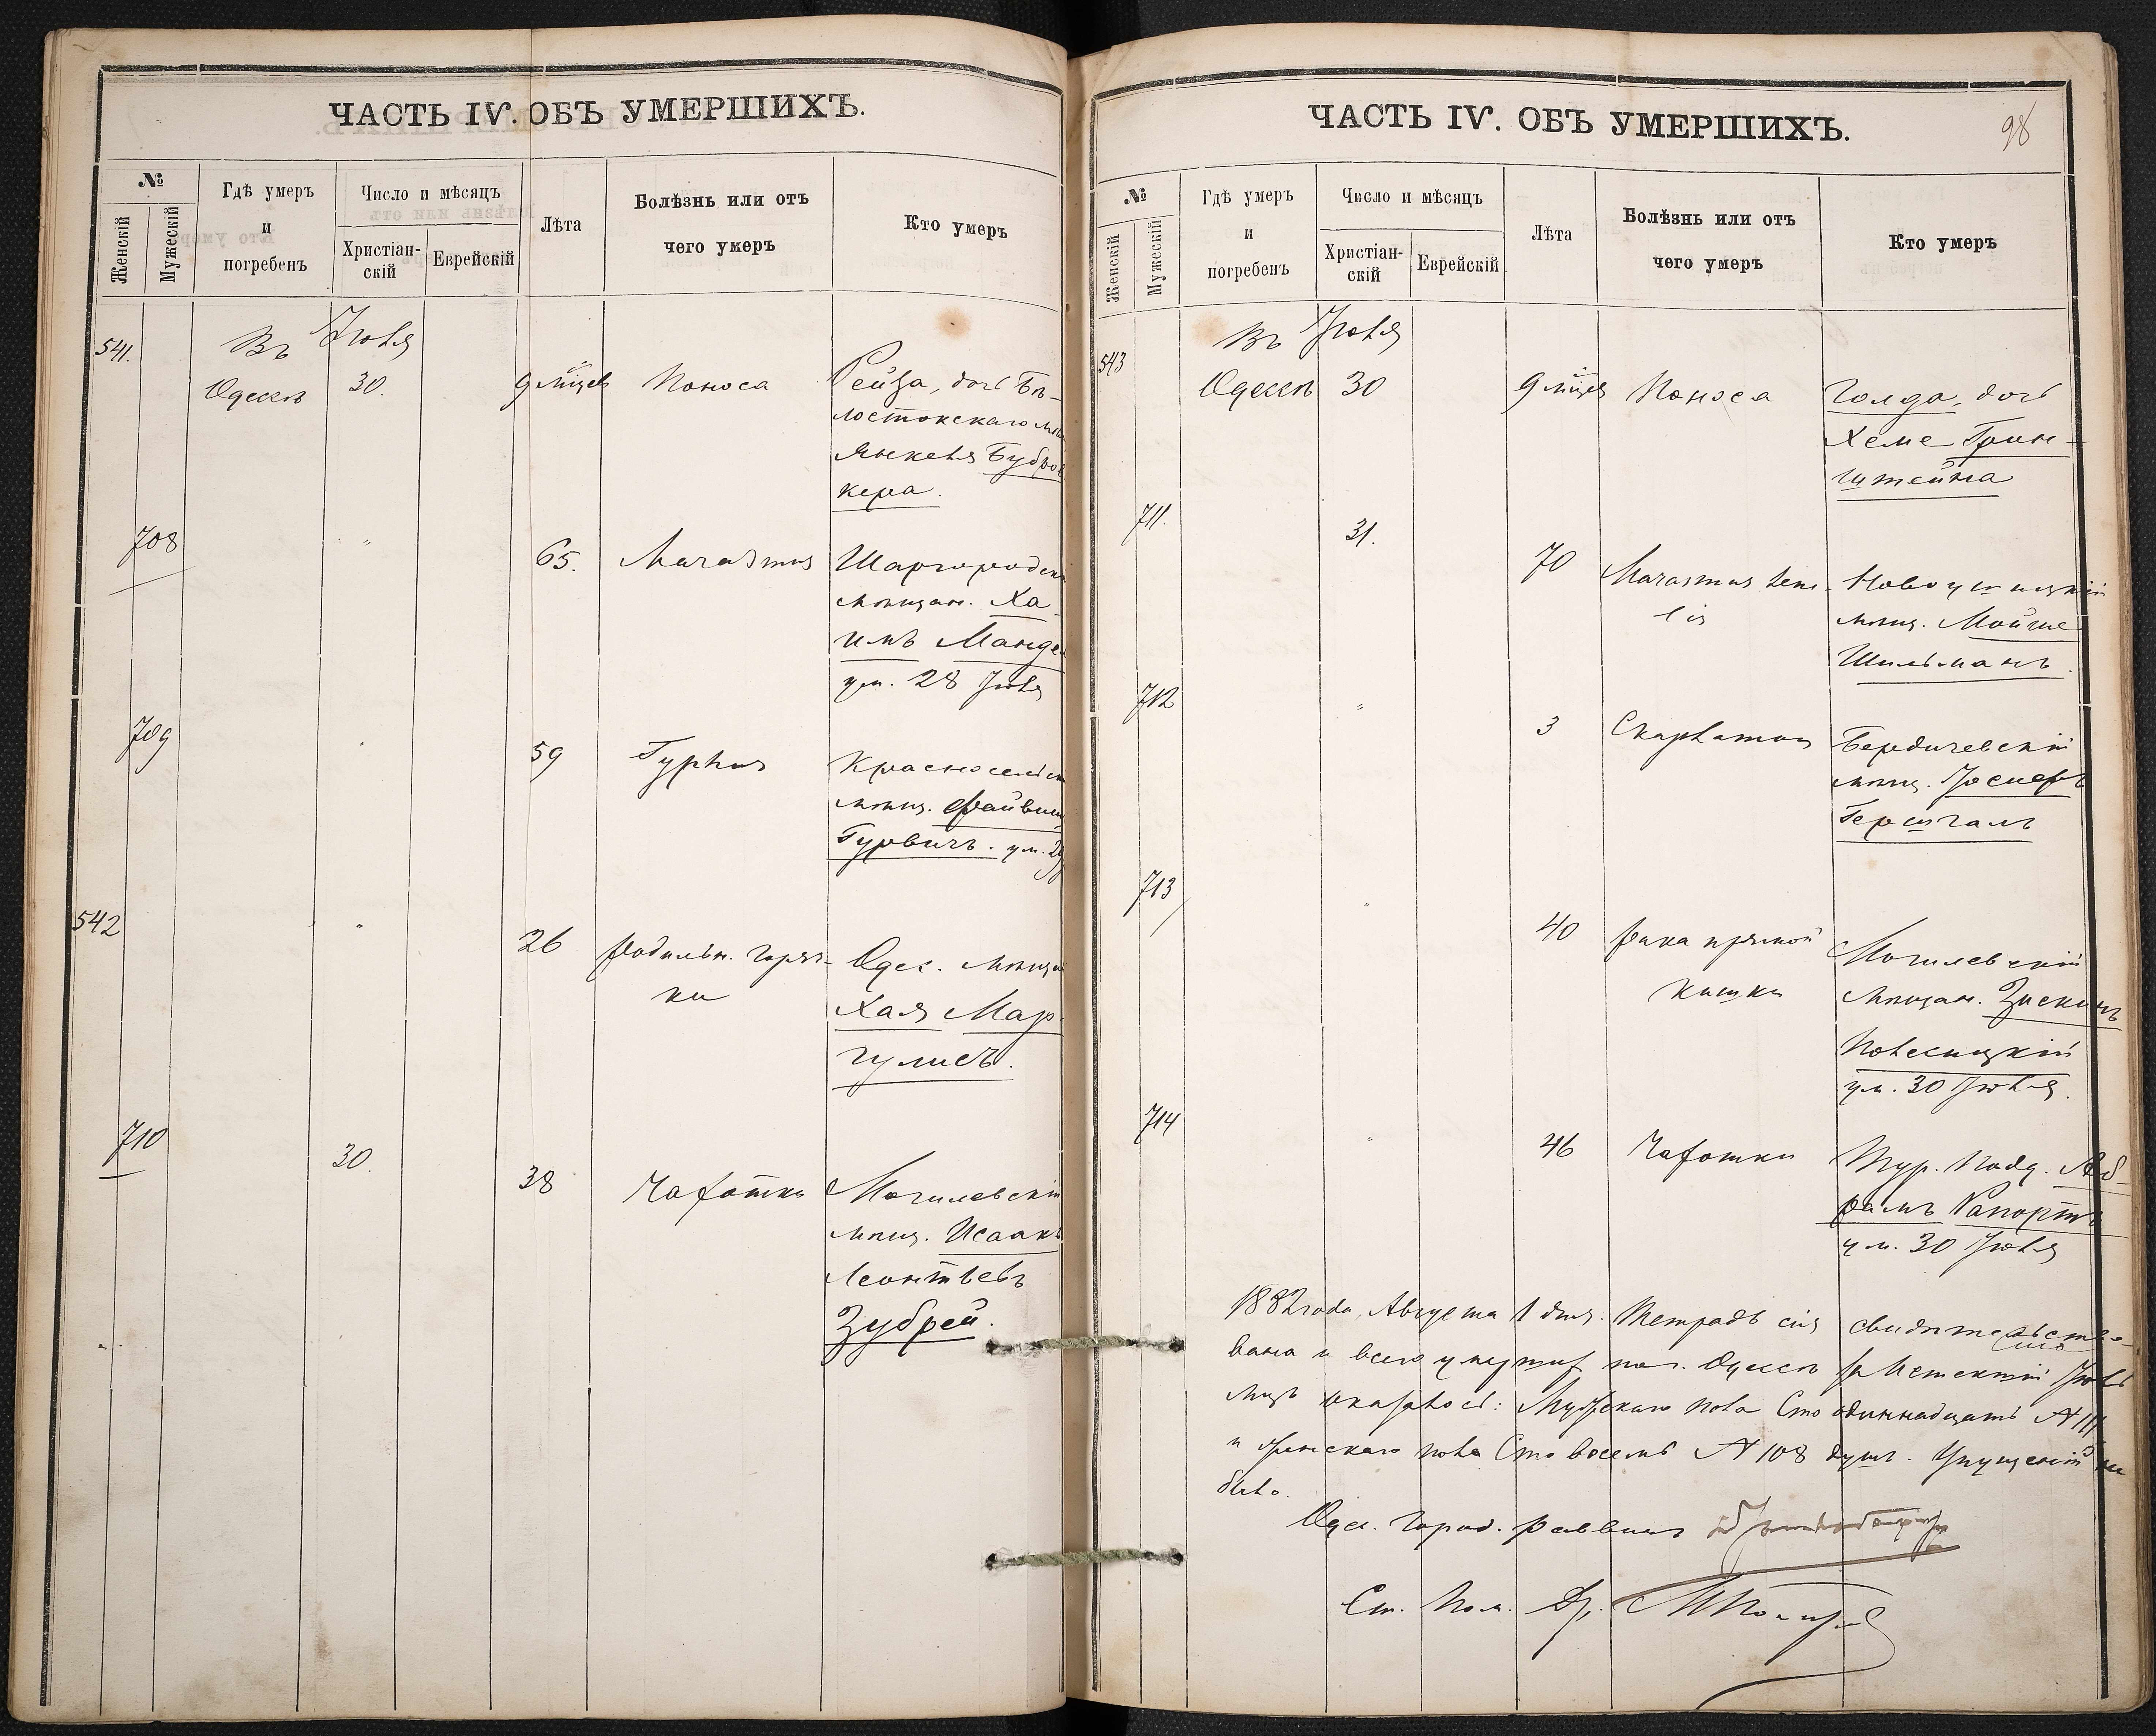 ЧАСТЬ IV. ОБЪ УМЕРШИХЪ.
№
Женскій
Мужескій
Гдѣ умеръ
и
погребенъ
Число и мѣсяцъ
Христіан-
скій
Еврейскій
Лѣта
Болѣзнь или отъ
чего умеръ
Кто умеръ
541. Въ Іюля
Одессѣ 30. 9 мѣсцевъ Поноса Рейза, дочь Бѣ-
лостокскаго
Янкеля Бубров
кера.
708 " 65. Marasmus Шаргородск
мѣщан. Ха
имъ Мандел
ум. 28 Іюля
709 " 59 Typhus Красносельск
мѣщ. Файвиш
Гурвичъ. ум. 29
542 " 26 Родильн. горяч- Одес. мѣщан
ки Хая Мар
гулисъ.
710 30. 38 Чахотки Могилевскій
мѣщ. Исаакъ
Леонтьевъ
Зубрей.
ЧАСТЬ IV. ОБЪ УМЕРШИХЪ.
98
№
Женскій
Мужескій
Гдѣ умеръ
и
погребенъ
Число и мѣсяцъ
Христіан-
скій
Еврейскій
Лѣта
Болѣзнь или отъ
чего умеръ
Кто умеръ
543 Въ Іюля
Одессѣ 30 9 мѣсцевъ Поноса Голда, дочь
Хеме Грин-
штейна
711. 31. 70 Marasmus seni- Новоушицкій
lis мѣщ. Мойше
Шильманъ.
712 " 3 Скарлатины Бердичевскій
мѣщ. Іосифъ
Гершгалъ
713 " 40 Рака прямой Могилевскій
кишки мѣщан. Зискинъ
ум. 30 Іюля.
714 " 46 Чахотки Тур. Подд. Аб-
рамъ Рапортъ
ум. 30 Іюля
1882 года, Августа 1 дня. Тетрадь сія свидѣтельство-
вана и всего умершихъ по г. Одессѣ за истекшій Іюль
мѣц. оказалось: Мужскаго пола Сто одиннадцать № 111
и женскаго пола Сто восемь № 108 душъ. Упущеній не
было.
Одес. Город. Раввинъ
Ст. Пом. Др.